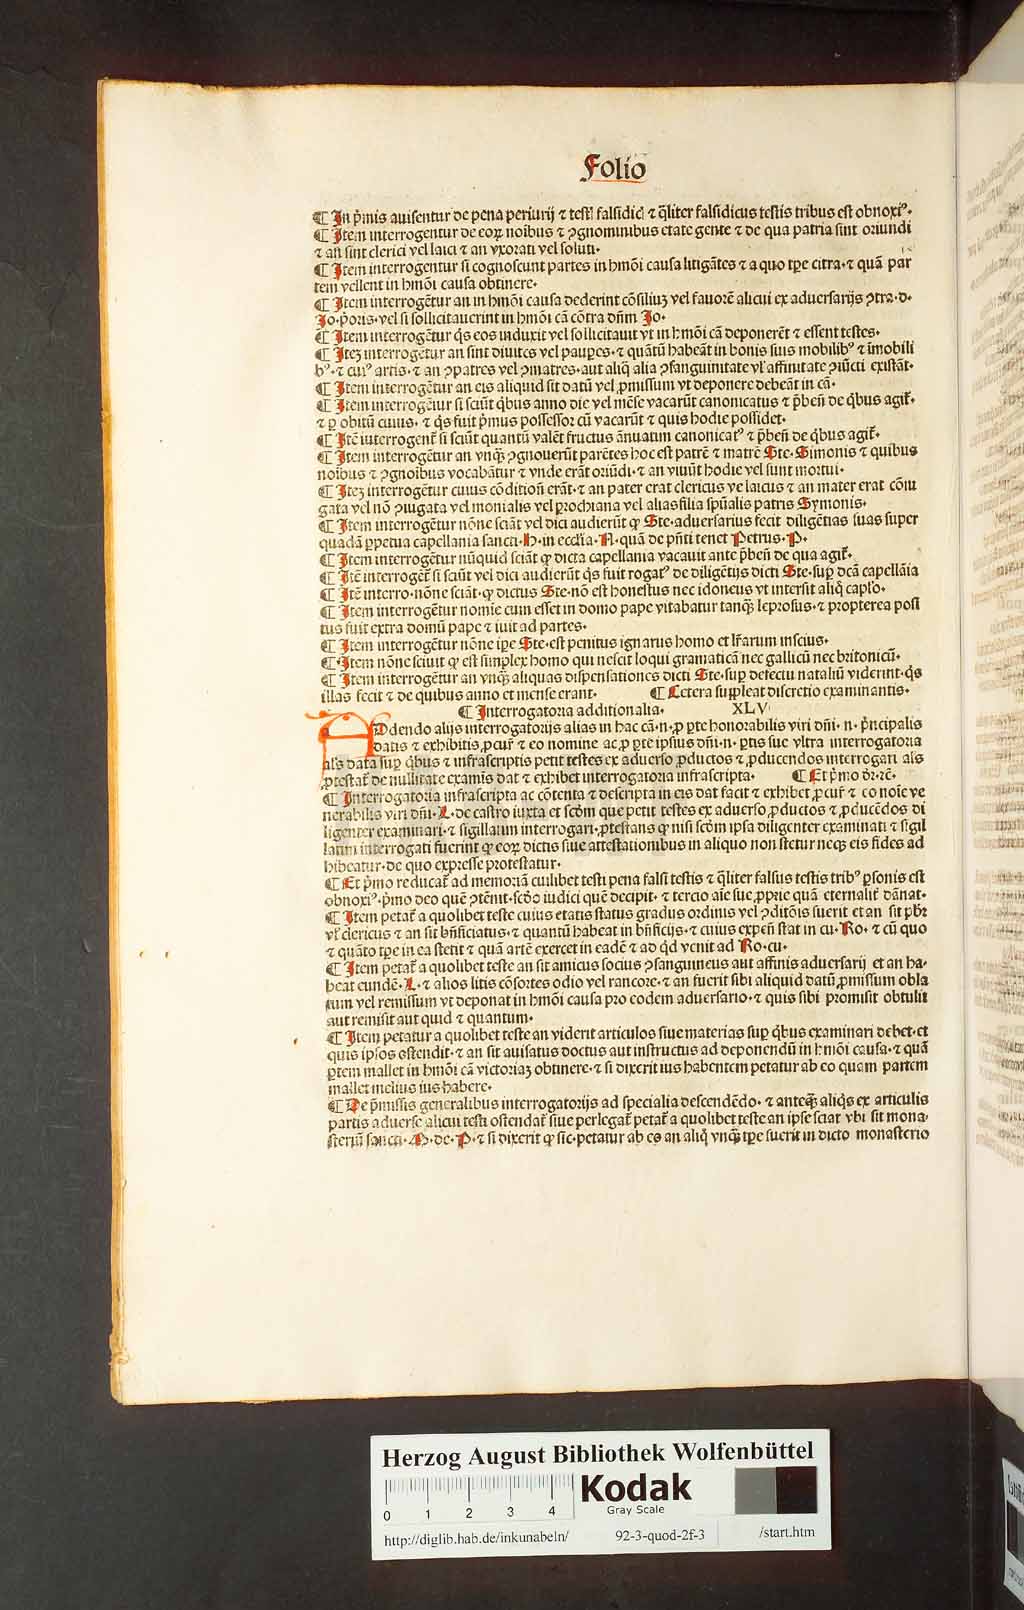 Folio
¶ In p̄mis auisentur de pena periurij ⁊ testĩ falsidici ⁊ q̄liter falsidicus testis tribus est obnoxiꝰ.
¶ Item interrogentur de eoꝝ noibus ⁊ ꝯgnominibus etate gente ⁊ de qua patria sint oriundi
⁊ an sint clerici vel laici ⁊ an vxorati vel soluti.
¶ Item interrogentur si cognoscunt partes in hmõi causa litigãtes ⁊ a quo tp̄e citra. ⁊ quã par
tem vellent in hmõi causa obtinere.
¶ Item interrogẽtur an in hmõi causa dederint cõsiliuʒ vel fauorẽ alicui ex aduersarijs ꝯtra. d.
Jo. p̄oris. vel si sollicitauerint in hmõi cã cõtra dñm Jo.
¶ Item interrogẽtur q̃s eos induxit vel sollicitauit vt in hmõi cã deponerẽt ⁊ essent testes.
¶ Iteʒ interrogẽtur an sint diuites vel paupes. ⁊ quãtũ habeãt in bonis suis mobilibꝰ ⁊ ĩmobili
bꝰ. ⁊ cuiꝰ artis. ⁊ an ꝯpatres vel ꝯmatres. aut aliq̃ alia ꝯsanguinitate vl̓ affinitate ꝯiũcti existãt.
¶ Item interrogẽtur an eis aliquid sit datũ vel ꝓmissum vt deponere debeãt in cã.
¶ Item interrogẽtur si sciũt q̃bus anno die vel mẽse vacarũt canonicatus ⁊ p̄beñ de q̃bus agit̃.
⁊ ꝑ obitũ cuius. ⁊ q̃s fuit p̄mus possessor cũ vacarũt ⁊ quis hodie possidet.
¶ Itẽ iuterrogent̃ si sciũt quantũ valẽt fructus ãnuatim canonicatꝰ ⁊ p̄beñ de q̃bus agit̃.
¶ Item interrogẽtur an vnq̃ꝫ ꝯgnouerũt parẽtes hoc est patrẽ ⁊ matrẽ Ste. Simonis ⁊ quibus
noibus ⁊ ꝯgnoibus vocabãtur ⁊ vnde erãt oriũdi. ⁊ an viuũt hodie vel sunt mortui.
¶ Iteʒ interrogẽtur cuius cõditioñ erãt. ⁊ an pater erat clericus ve laicus ⁊ an mater erat cõiu
gata vel nõ ꝯiugata vel monialis vel ꝑrochiana vel alias filia spũalis patris Symonis.
¶ Item interrogẽtur nõne sciãt vel dici audierũt ꝙ Ste. aduersarius fecit diligẽtias suas super
quadã ꝑpetua capellania sancti. H. in eccĩia. A. quã de p̄nti tenet Petrus. P.
¶ Item interrogẽtur nũquid sciãt ꝙ dicta capellania vacauit ante p̄beñ de qua agit̃.
¶ Itẽ interrogẽt̃ si sciũt vel dici audierũt q̃s fuit rogatꝰ de diligẽtijs dicti Ste. suꝑ dcã capellãia
¶ Itẽ interro. nõne sciãt. ꝙ dictus Ste. nõ est honestus nec idoneus vt intersit aliq̃ caplo.
¶ Item interrogẽtur nõnie cum esset in domo pape vitabatur tanq̃ꝫ leprosus. ⁊ propterea posi
tus fuit extra domũ pape ⁊ iuit ad partes.
¶ Item interrogẽtur nõne ip̃e Ste. est penitus ignarus homo et lr̃arum inscius.
¶ Item nõne sciuit ꝙ est simplex homo qui nescit loqui gramaticã nec gallicũ nec britonicũ.
¶ Item interrogẽtur an vnq̃ꝫ aliquas dispensationes dicti Ste. suꝑ defectu nataliũ viderint. q̃s
illas fecit ⁊ de quibus anno et mense erant. ¶ Cetera suppleat discretio examinantis.
¶ Interrogatoria additionalia. XLV
ADdendo alijs interrogatorijs alias in hac cã. n. ꝓ ꝑte honorabilis viri dñi. n. p̄ncipalis
datis ⁊ exhibitis ꝓcur̃ ⁊ eo nomine ac ꝓ ꝑte ipsius dñi. n. ꝑtis sue vltra interrogatoria
al̓s data suꝑ q̃bus ⁊ infrascriptis petit testes ex aduerso ꝓductos ⁊ ꝓducendos interrogari al̓s
ꝓtestat̃ de nullitate examĩs dat ⁊ exhibet interrogatoria infrascripta. ¶ Et p̄mo dr̃. rẽ.
¶ Interrogatoria infrascripta ac cõtenta ⁊ descripta in eis dat facit ⁊ exhibet ꝓcur̃ ⁊ eo noĩe ve
nerabilis viri dñi. L. de castro iuxta et scd̃m que petit testes ex aduerso ꝓductos ⁊ ꝓducẽdos di
ligenter examinari. ⁊ sigillatim interrogari. ꝓtestans ꝙ nisi scd̃m ipsa diligenter examinati ⁊ sigil
latim interrogati fuerint ꝙ eoꝝ dictis siue attestationibus in aliquo non stetur neqꝫ eis fides ad
hibeatur. de quo expresse protestatur.
¶ Et p̄mo reducat̃ ad memoriã cuilibet testi pena falsi testis ⁊ q̄liter falsus testis tribꝰ ꝑsonis est
obnoxiꝰ. p̄mo deo quẽ ꝯtẽnit. scd̃o iudici quẽ decipit. ⁊ tercio aĩe sue ꝓprie quã eternalit̃ dãnat.
¶ Item petat̃ a quolibet teste cuius etatis status gradus ordinis vel ꝯditõis fuerit et an sit pb̃r
vl̓ clericus ⁊ an sit bñficiatus. ⁊ quantũ habeat in bñficijs. ⁊ cuius expeñ stat in cu. Ro. ⁊ cũ quo
⁊ quãto tp̄e in ea stetit ⁊ quã artẽ exercet in eadẽ ⁊ ad q̃d venit ad Ro. cu.
¶ Item petat̃ a quolibet teste an sit amicus socius ꝯsanguineus aut affinis aduersarij et an ha-
beat eundẽ. L. ⁊ alios litis cõsortes odio vel rancore. ⁊ an fuerit sibi aliquid datũ ꝓmissum obla
tum vel remissum vt deponat in hmõi causa pro eodem aduersario. ⁊ quis sibi promisit obtulit
aut remisit aut quid ⁊ quantum.
¶ Item petatur a quolibet teste an viderit articulos siue materias suꝑ q̃bus examinari debet. et
quis ipsos ostendit. ⁊ an sit auisatus doctus aut instructus ad deponendũ in hmõi causa. ⁊ quã
ꝑtem mallet in hmõi cã victoriaʒ obtinere. ⁊ si dixerit ius habentem petatur ab eo quam partem
mallet melius ius habere.
¶ De p̄missis generalibus interrogatorijs ad specialia descendẽdo. ⁊ anteq̃ꝫ aliq̃s ex articulis
partis aduerse alicui testi ostendat̃ siue perlegat̃ petat̃ a quolibet teste an ipse sciat vbi sit mona-
steriũ sancti. M. de. P. ⁊ si dixerit ꝙ sic. petatur ab eo an aliq̃ vnq̃ꝫ tp̄e fuerit in dicto monasterio
Herzog August Bibliothek Wolfenbüttel
0 1 2 3 4
Kodak
Gray Scale
http://diglib.hab.de/inkunabeln/ 92-3-quod-2f-3 /start.htm